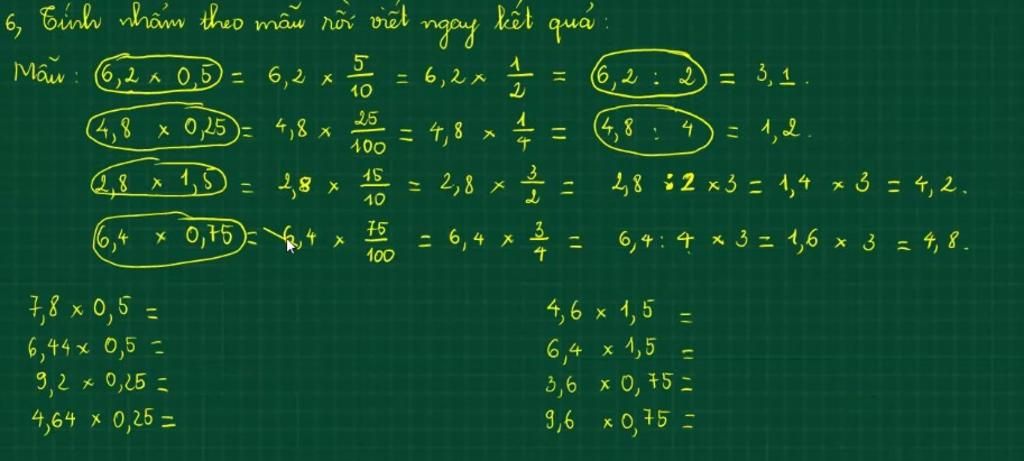 6, Tính nhẩm theo mẫu rồi viết ngay kết quả:
Mẫu: 6,2 × 0,5 = 6,2 × 5/10 = 6,2 × 1/2 = 6,2 : 2 = 3,1.
4,8 × 0,25 = 4,8 × 25/100 = 4,8 × 1/4 = 4,8 : 4 = 1,2.
2,8 × 1,5 = 2,8 × 15/10 = 2,8 × 3/2 = 2,8 : 2 × 3 = 1,4 × 3 = 4,2.
6,4 × 0,75 = 6,4 × 75/100 = 6,4 × 3/4 = 6,4 : 4 × 3 = 1,6 × 3 = 4,8.
7,8 × 0,5 =
6,44 × 0,5 =
9,2 × 0,25 =
4,64 × 0,25 =
4,6 × 1,5 =
6,4 × 1,5 =
3,6 × 0,75 =
9,6 × 0,75 =